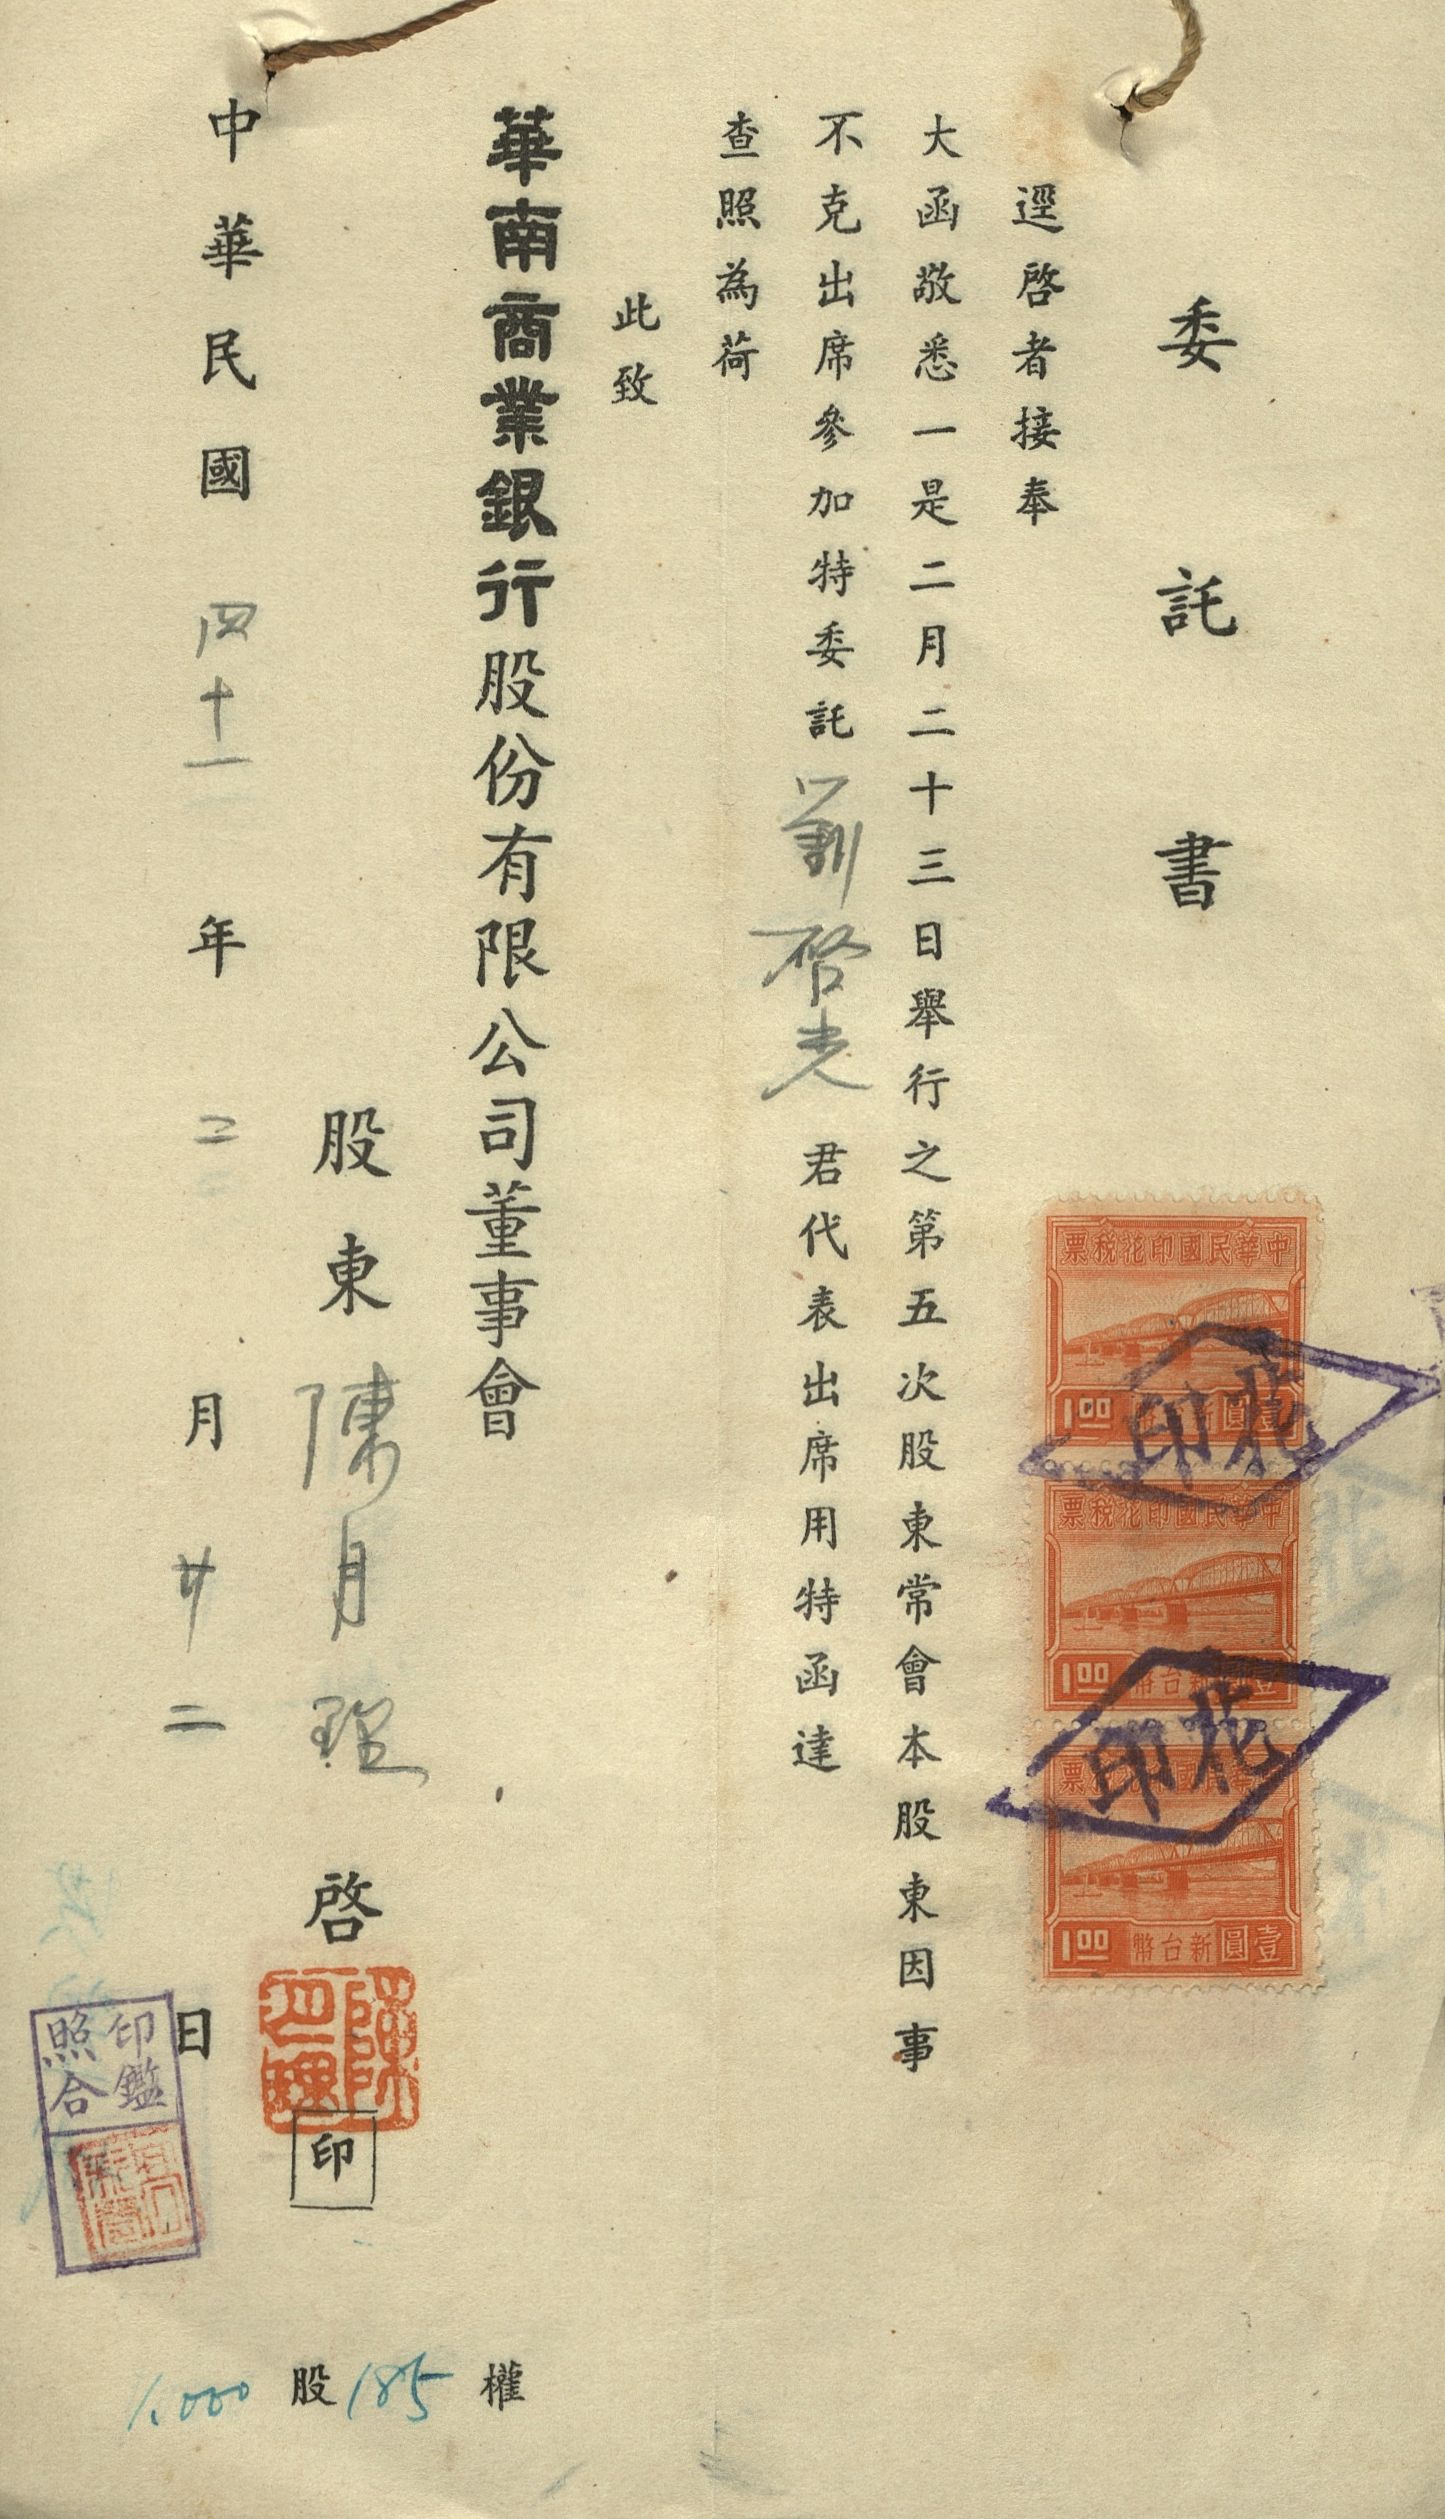 委託書
逕啓者接奉
大函敬悉一是二月二十三日舉行之第五次股東常會本股東因事
不克出席參加特委託劉啓光君代表出席用特函達
查照為荷
此致
華南商業銀行股份有限公司董事會
股東陳月理啓
印
中華民國四十一年二月廿二日
1,000股185權
中華民國印花稅票
1.00 新台幣壹圓
中華民國印花稅票
1.00 新台幣壹圓
中華民國印花稅票
1.00 新台幣壹圓
印花
印花
印鑑
照合